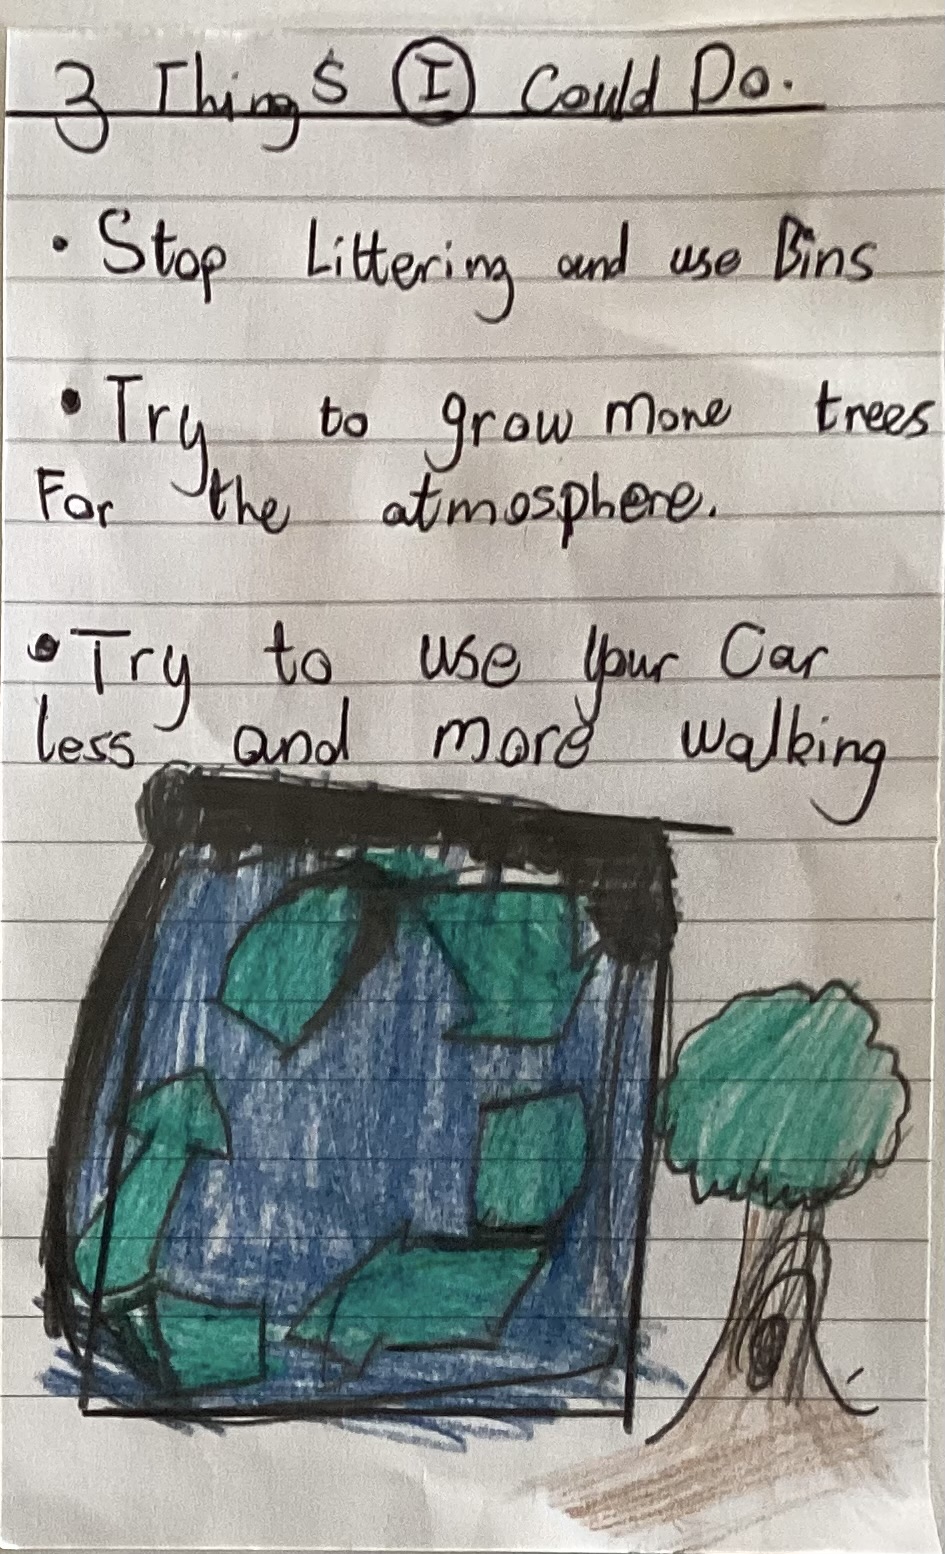 3 Things I Could Do.
• Stop Littering and use Bins
• Try to grow more trees
For the atmosphere.
• Try to use your Car
less and more walking